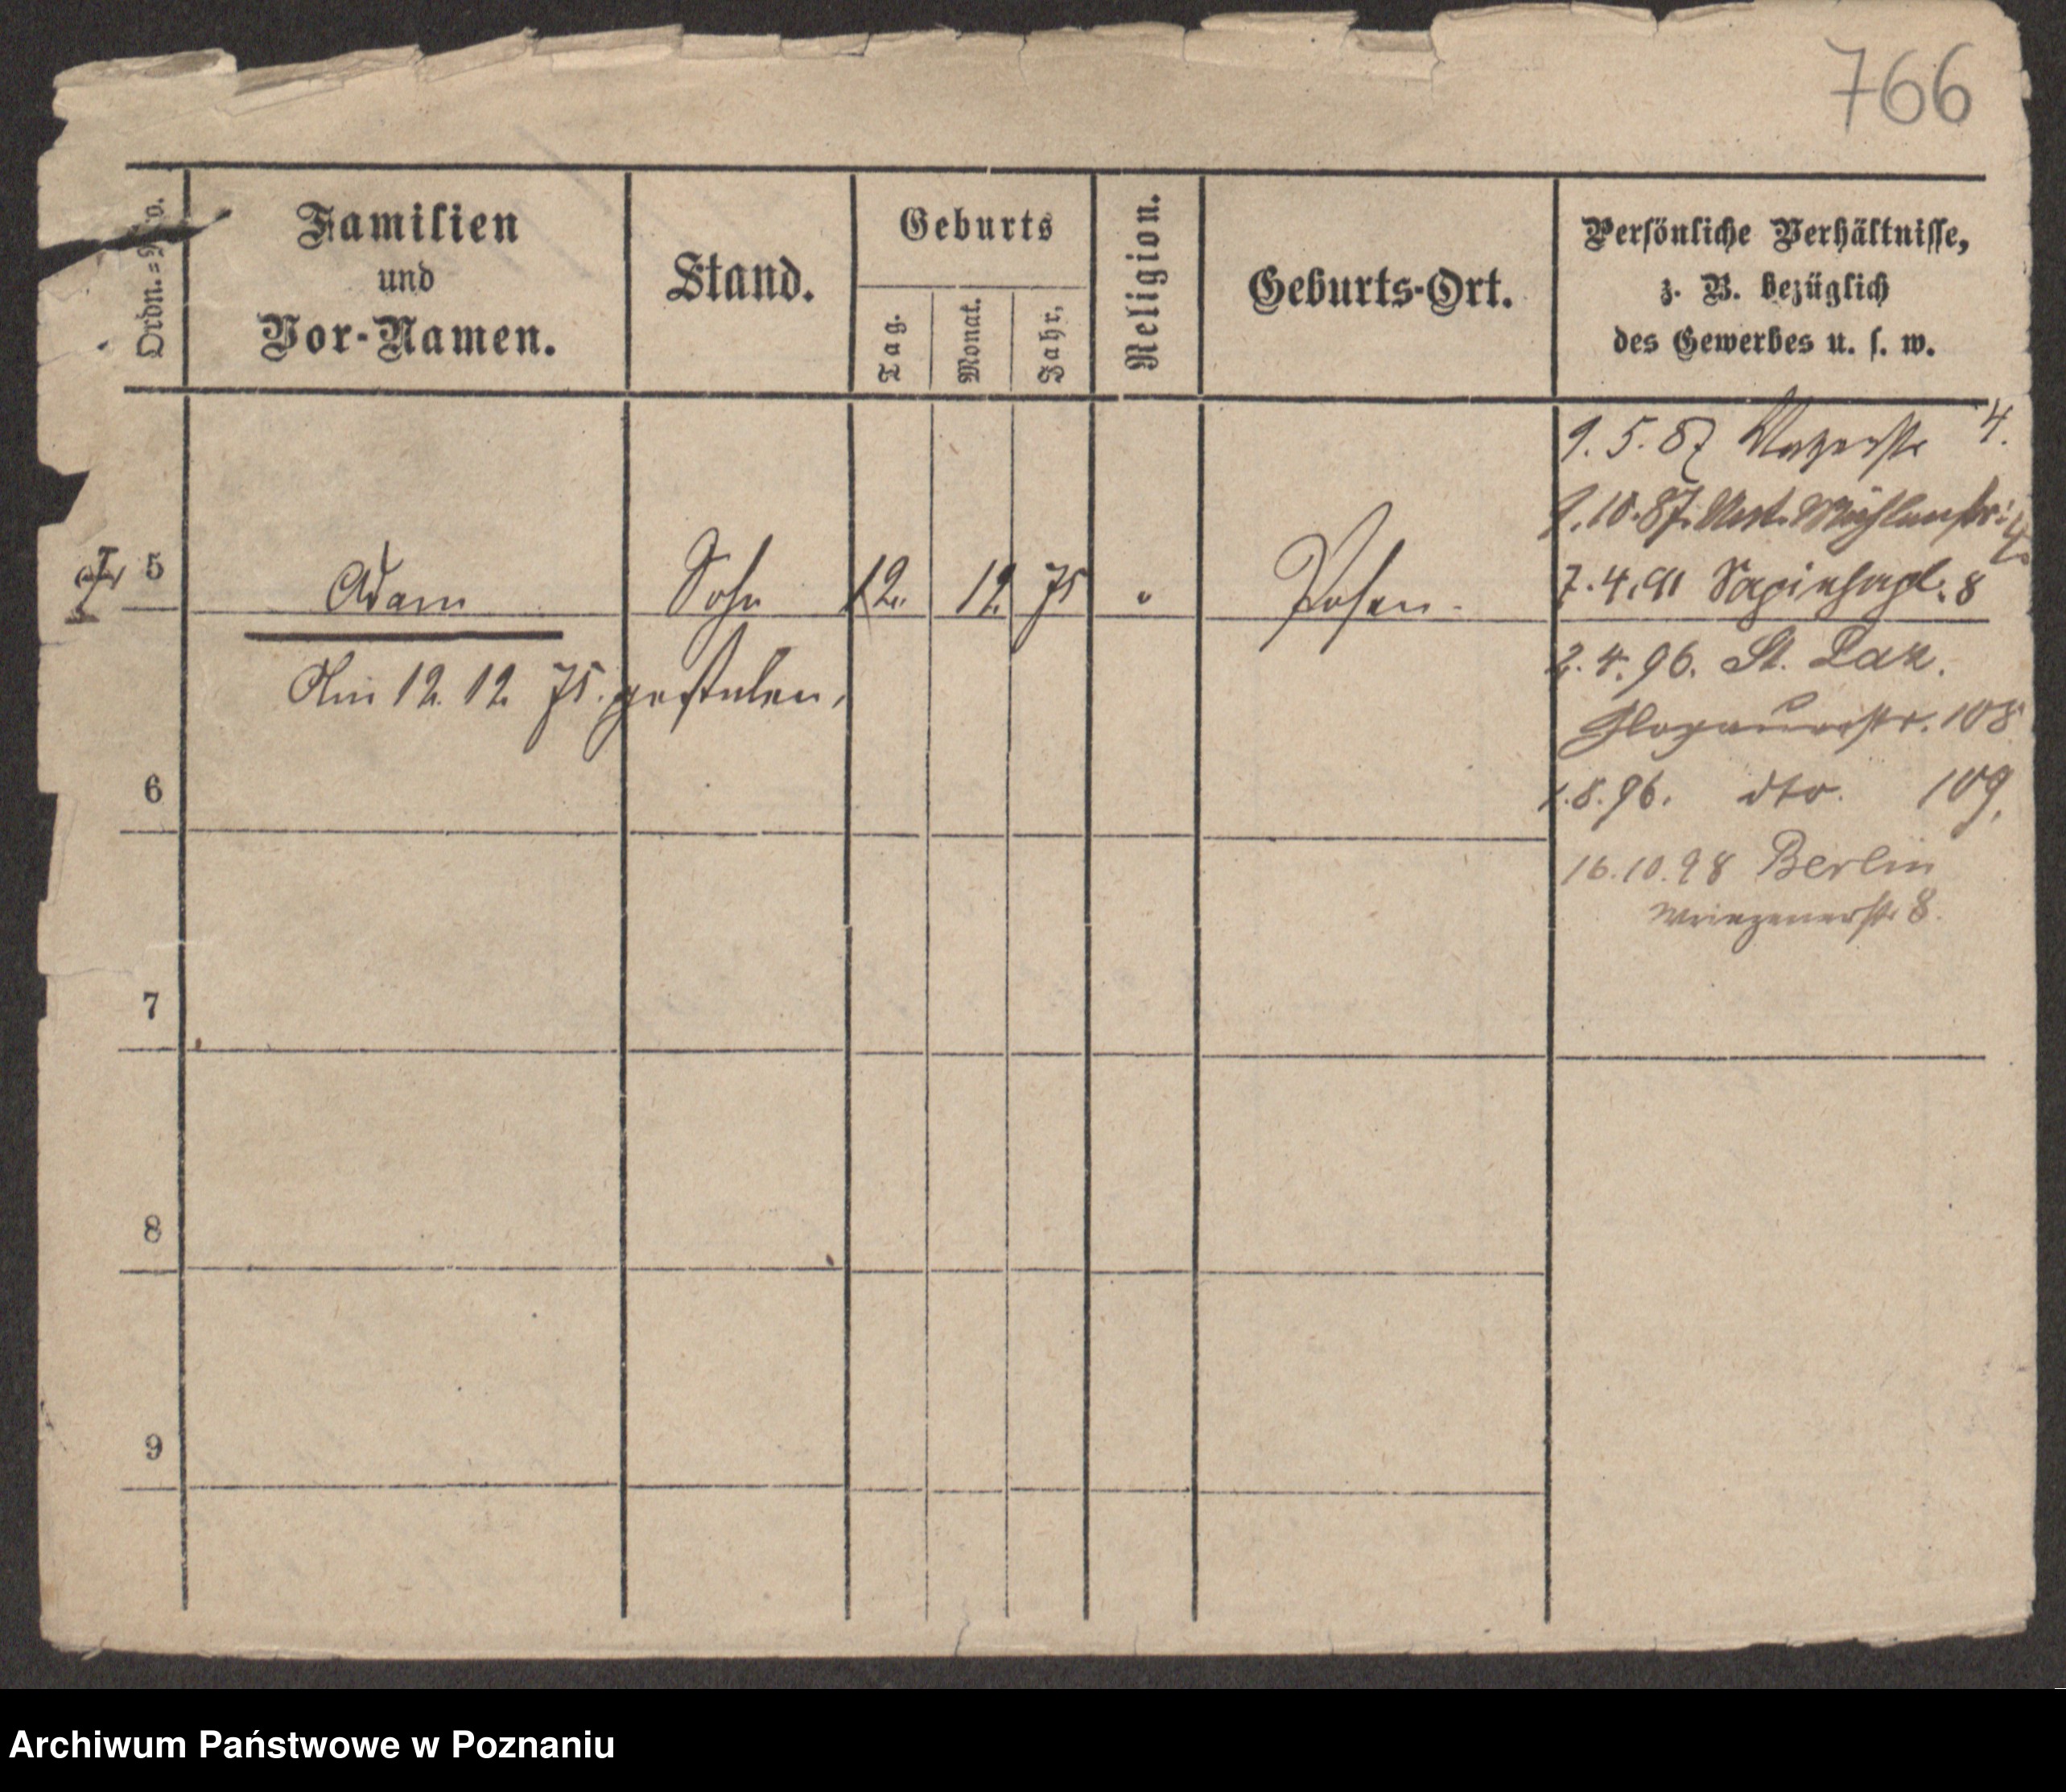 766
Ordn.=No.
Familien
und
Vor-Namen.
Stand.
Geburts
Tag.
Monat.
Jahr.
Religion.
Geburts-Ort.
Persönliche Verhältnisse,
z. B. bezüglich
des Gewerbes u. s. w.
9.5.87 4.
1.10.87. Mühlenstr.
5 Adam Sohn 12. 12. 75 " Posen.
7.4.91 Sapiehapl. 8
Am 12. 12. 75. gestorben.
2.4.96. St. Laz.
Glogauerstr. 108
1.8.96. dto. 109.
6
16.10.98 Berlin
Wriezenerstr 8.
7
8
9
Archiwum Państwowe w Poznaniu